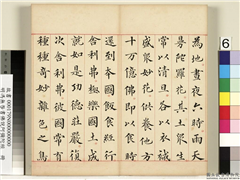 為地晝夜六時雨天
曼陀羅花其土眾生
常以清旦各以衣祴
盛眾妙花供養他方
十萬億佛即以食時
還到本國飯食經行
舍利弗極樂國土成
就如是功德莊嚴復
次舍利弗彼國常有
種種奇妙雜色之鳥
6